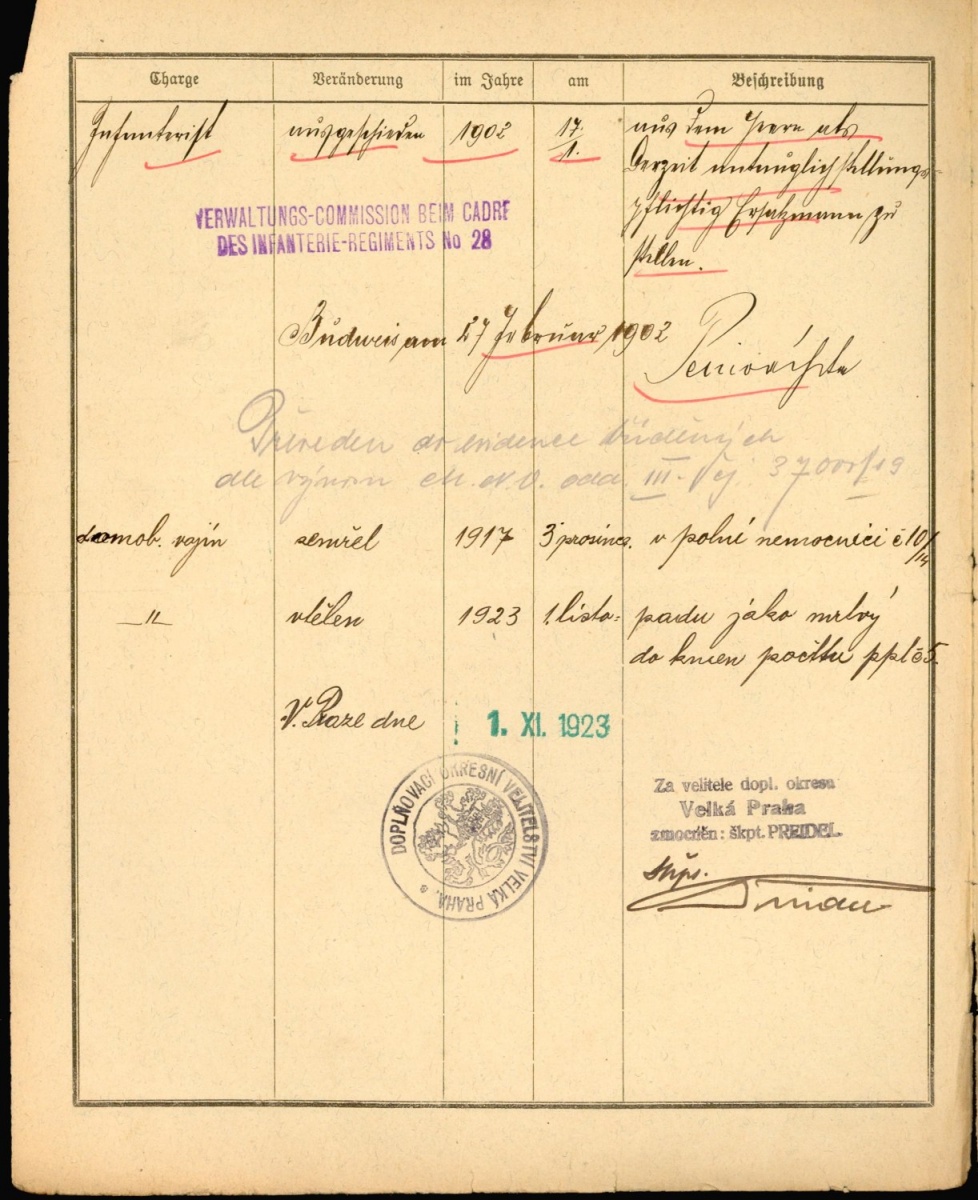 Charge Veränderung im Jahre am Beschreibung
Infanterist ausgeschieden 1902 17/1. aus dem Heere als
derzeit untauglich stellungs-
pflichtig Ersatzmann zu
stellen.
VERWALTUNGS-COMMISSION BEIM CADRE
DES INFANTERIE-REGIMENTS No 28
Budweis, am 27 Februar 1902
Převeden do evidence
dle výnosu III. čj.
domob. vojín zemřel 1917 3 prosince. v polní nemocnici č 10/14
—"— vtělen 1923 1. listo- padu jako mrtvý
do kmen počtu ppl č 5.
V. Praze dne 1. XI. 1923
DOPLŇOVACÍ OKRESNÍ VELITELSTVÍ VELKÁ PRAHA.
Za velitele dopl. okresu
Velká Praha
zmocněn: škpt. PREIDEL.
škpt.